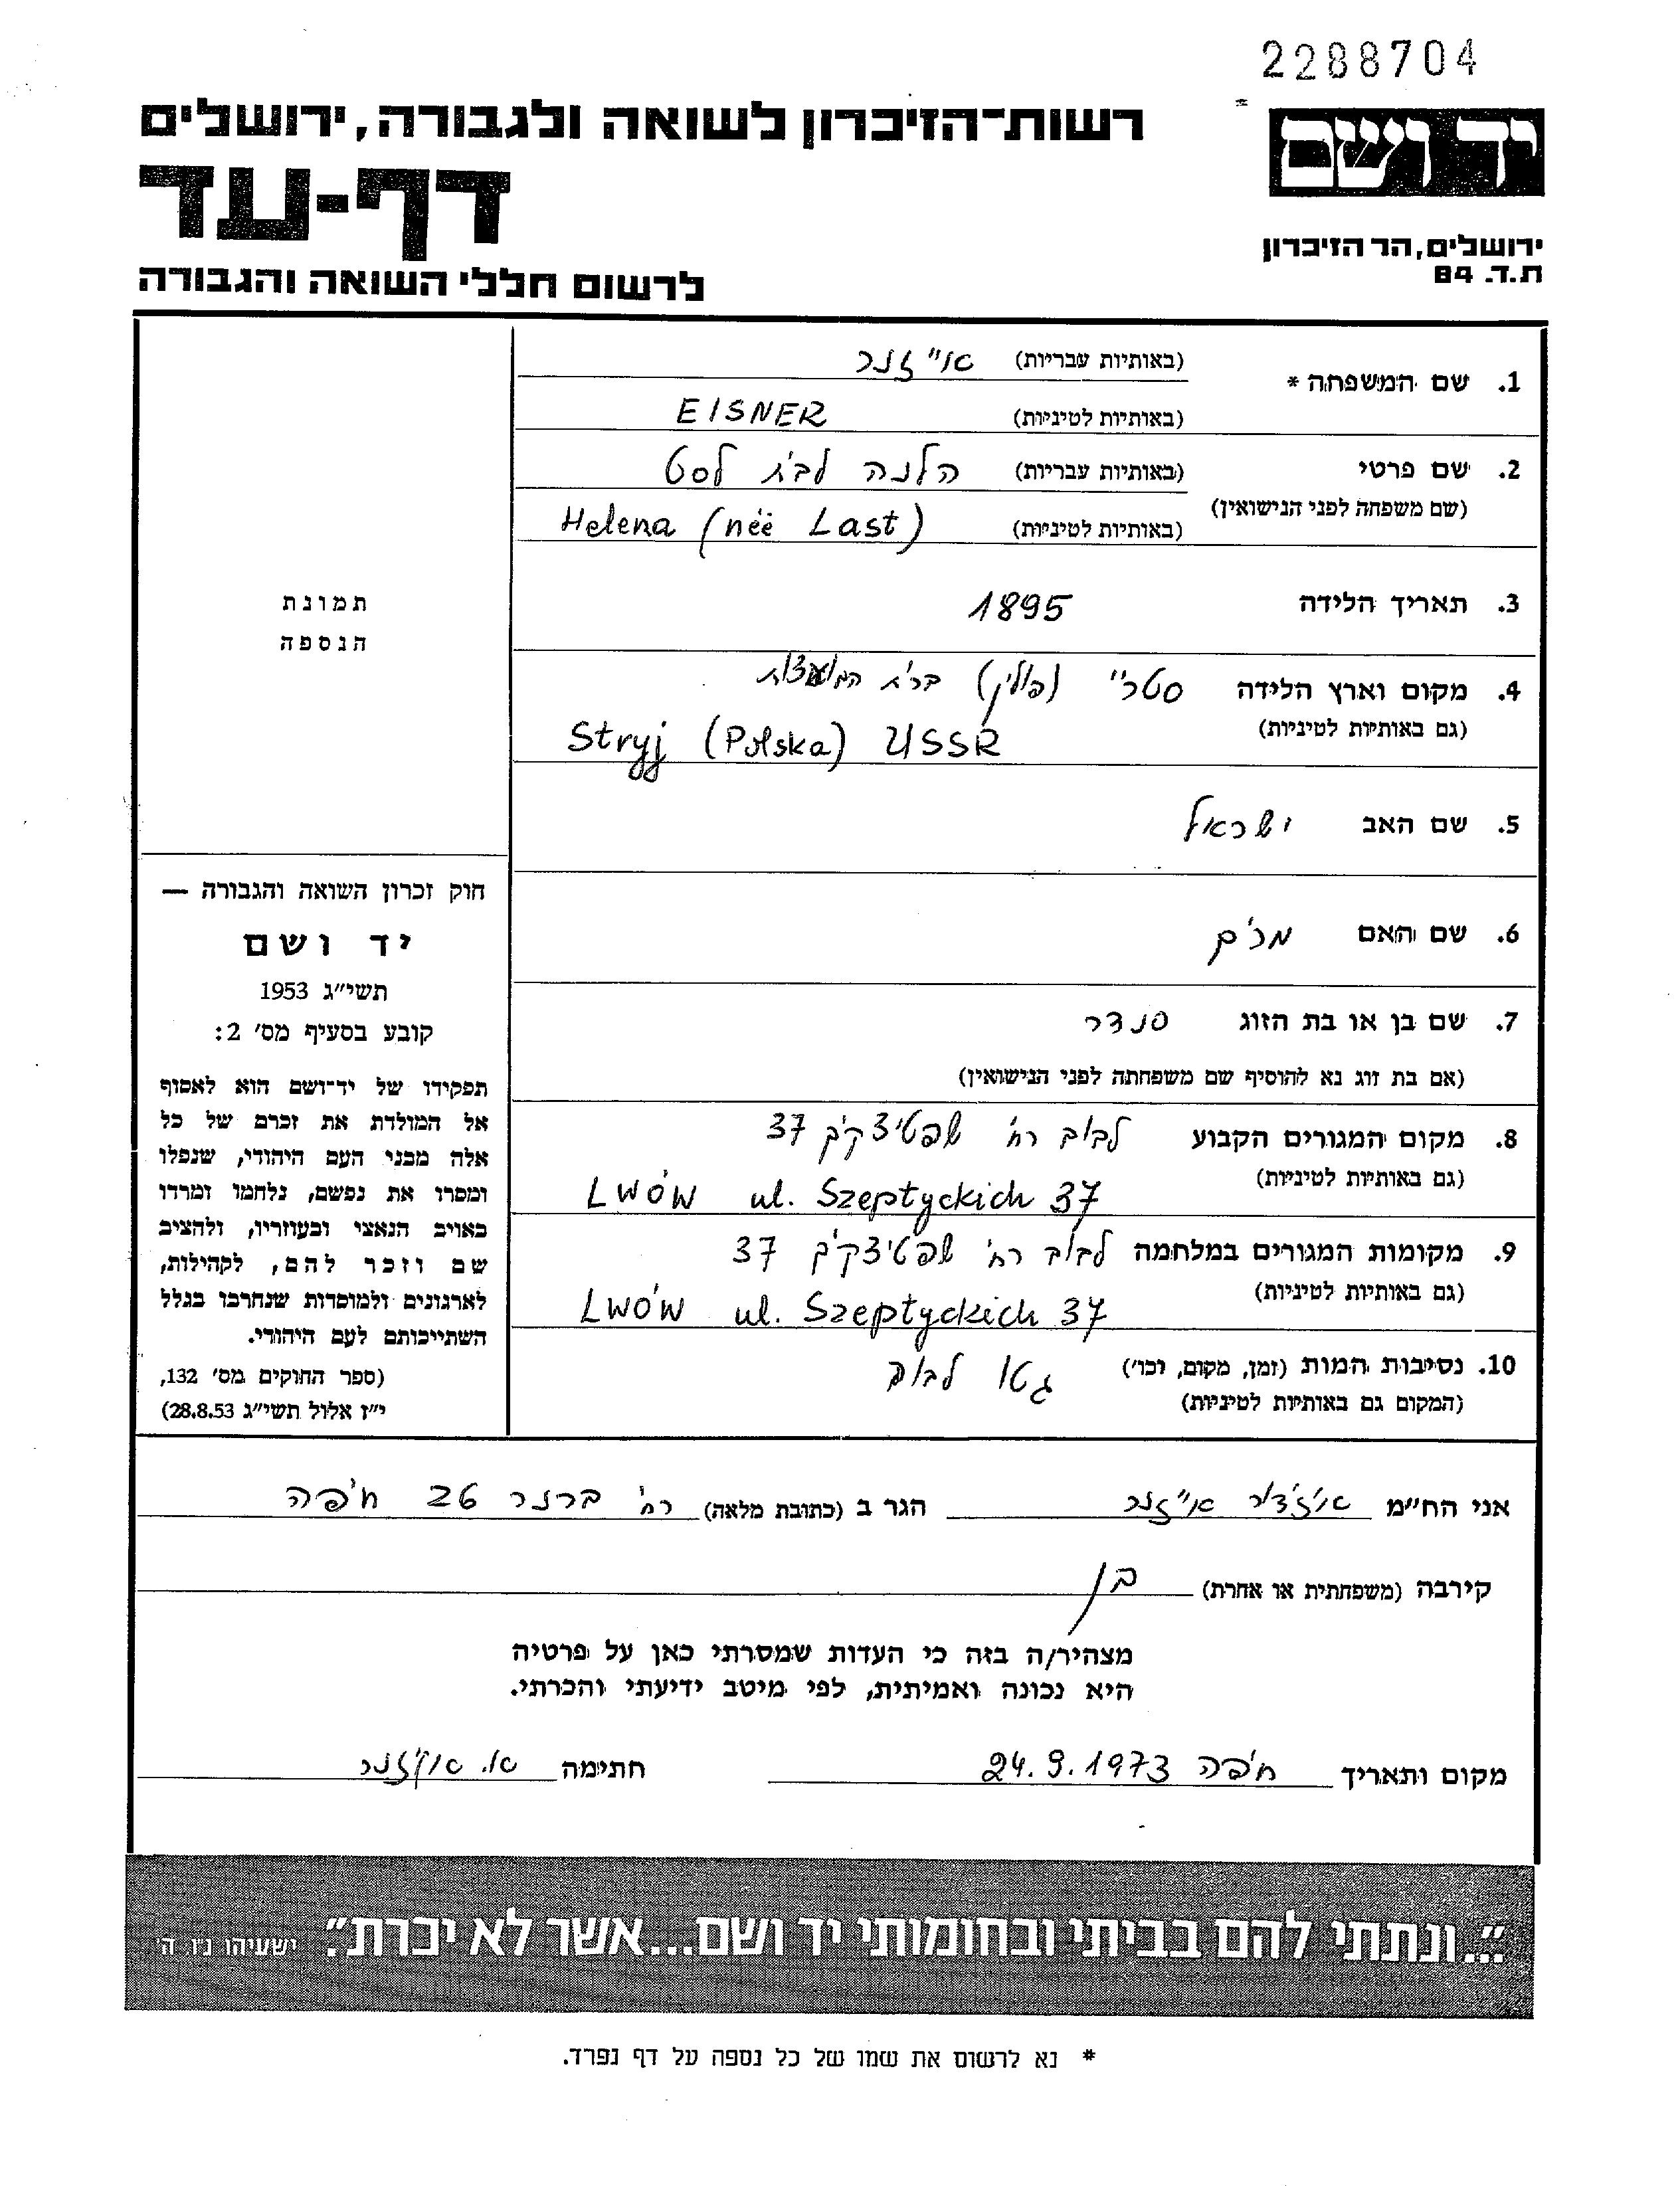 2288704
יד ושם
רשות־הזיכרון לשואה ולגבורה, ירושלים
דף-עד
ירושלים, הר הזיכרון
ת.ד. 84
לרשום חללי השואה והגבורה
1. שם המשפחה * (באותיות עבריות) אייזנר
(באותיות לטיניות) EISNER
2. שם פרטי (באותיות עבריות) הלנה לבית לסט
(שם משפחה לפני הנישואין)
(באותיות לטיניות) Helena (neé Last)
3. תאריך הלידה 1895
4. מקום וארץ הלידה סטרי (פולין) ברית המועצות
(גם באותיות לטיניות) Stryj (Polska) USSR
5. שם האב ישראל
6. שם האם מרים
7. שם בן או בת הזוג סנדר
(אם בת זוג נא להוסיף שם משפחתה לפני הנישואין)
8. מקום המגורים הקבוע לבוב רח' שפטיצקים 37
(גם באותיות לטיניות) LWÓW ul. Szeptyckich 37
9. מקומות המגורים במלחמה לבוב רח' שפטיצקים 37
(גם באותיות לטיניות) LWÓW ul. Szeptyckich 37
10. נסיבות המות (זמן, מקום, וכו') גטו לבוב
(המקום גם באותיות לטיניות)
תמונת
הנספה
חוק זכרון השואה והגבורה —
יד ושם
תשי״ג 1953
קובע בסעיף מס׳ 2:
תפקידו של יד־ושם הוא לאסוף
אל המולדת את זכרם של כל
אלה מבני העם היהודי, שנפלו
ומסרו את נפשם, נלחמו ומרדו
באויב הנאצי ובעוזריו, ולהציב
שם וזכר להם, לקהילות,
לארגונים ולמוסדות שנחרבו בגלל
השתייכותם לעם היהודי.
(ספר החוקים מס׳ 132,
י״ז אלול תשי״ג 28.8.53)
אני הח״מ איזידור אייזנר הגר ב (כתובת מלאה) רח' ברנר 26 חיפה
קירבה (משפחתית או אחרת) בן
מצהיר/ה בזה כי העדות שמסרתי כאן על פרטיה
היא נכונה ואמיתית, לפי מיטב ידיעתי והכרתי.
מקום ותאריך חיפה 24.9.1973 חתימה א. אייזנר
״...ונתתי להם בביתי ובחומותי יד ושם...אשר לא יכרת״. ישעיהו נ״ו ה׳
* נא לרשום את שמו של כל נספה על דף נפרד.